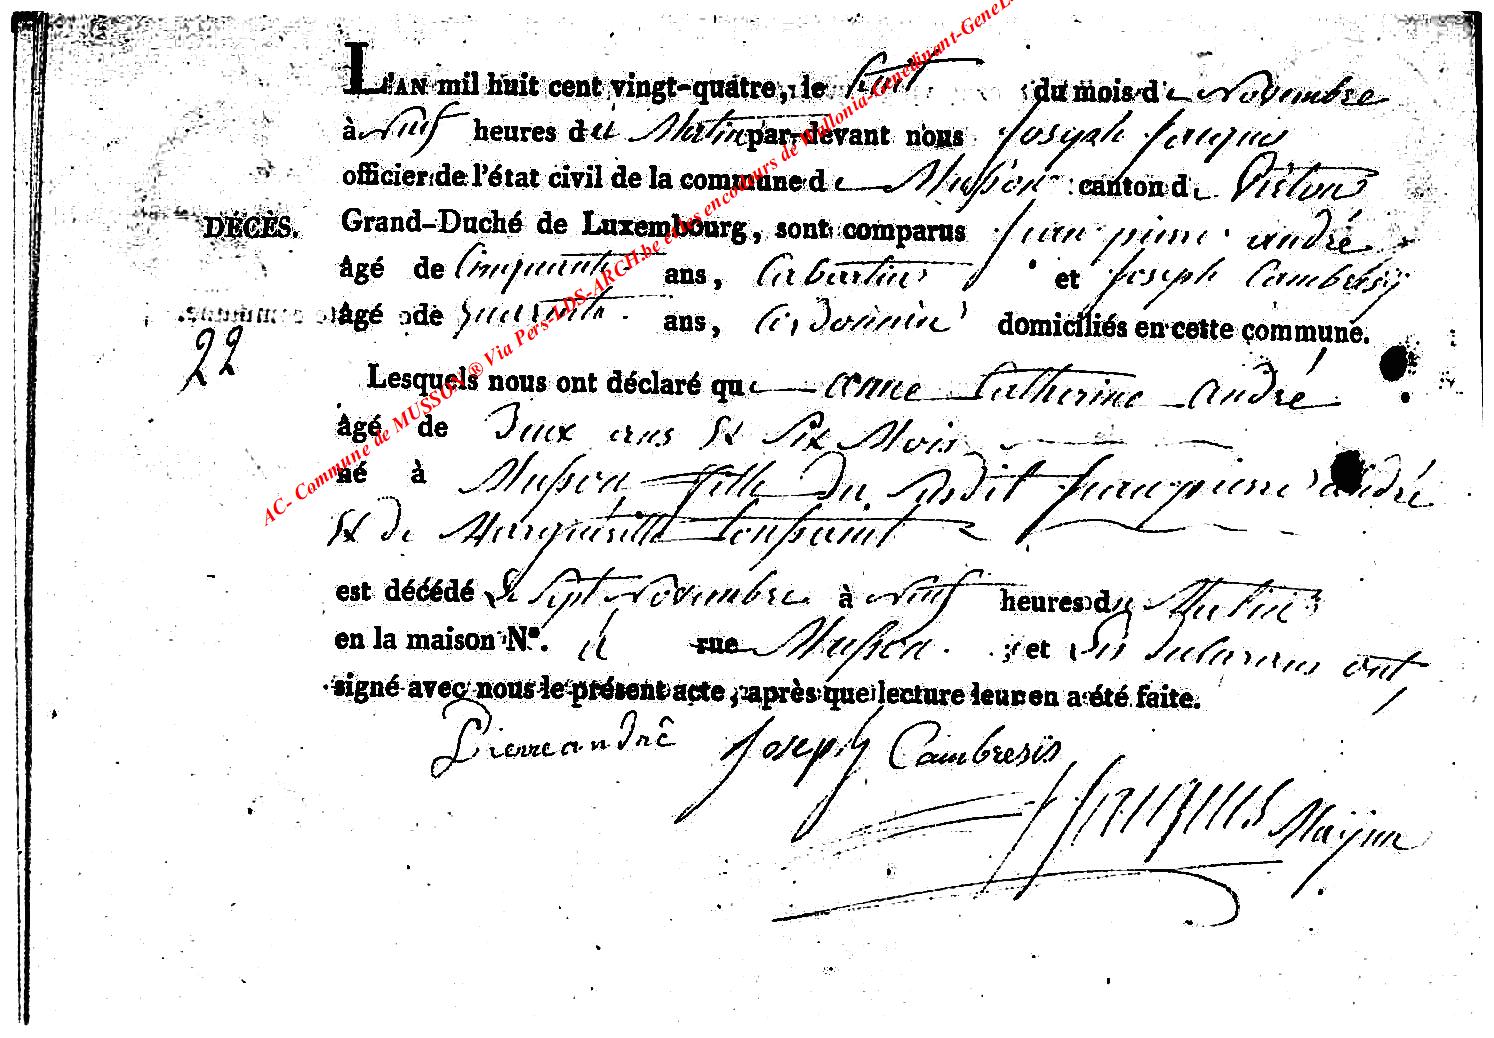 L'AN mil huit cent vingt-quatre, le huit du mois de Novembre
à Neuf heures du Matin par-devant nous Joseph Jacques
officier de l'état civil de la commune de Musson canton de Virton
DÉCÈS.
Grand-Duché de Luxembourg, sont comparus Jean pierre andré
âgé de Cinquante ans, Cabartier et Joseph Cambresÿ
âgé de quarante ans, Cordonnier domiciliés en cette commune.
22
Lesquels nous ont déclaré que anne Catherine andré
âgé de Deux ans & Six Mois
né à Musson fille du susdit Jean pierre andré
& de Marguéritte Toussaint
est décédé le Sept Novembre à Neuf heures du Matin
en la maison N°. à rue Musson et les Déclarans ont
signé avec nous le présent acte, après que lecture leur en a été faite.
Pierre andré Joseph Cambresis
Jacques Mayeur
AC- Commune de MUSSON ® Via Pers-LDS-ARCH.be et les encodeurs de Wallonia-Genedinant-GeneL